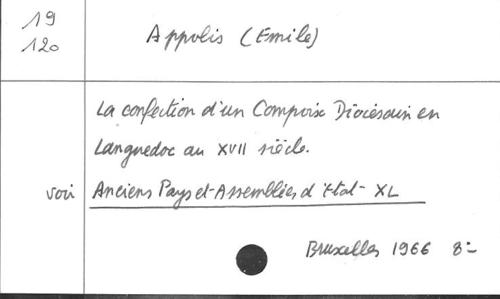 19
120
Appolis (Emile)
La confection d'un Compoix Diocésain en
Languedoc au XVII siècle.
voir Anciens Pays et Assemblées d'Etat - XL
Bruxelles 1966 8=